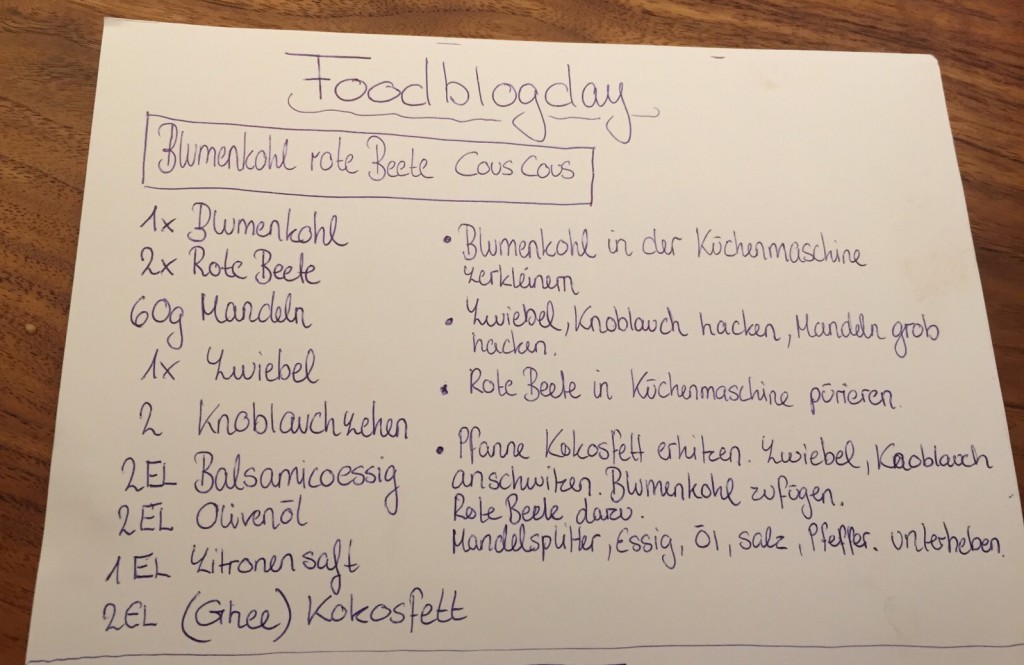 Foodblogday
Blumenkohl rote Beete Cous Cous
1x Blumenkohl
2x Rote Beete
60g Mandeln
1x Zwiebel
2 Knoblauchzehen
2EL Balsamicoessig
2EL Olivenöl
1EL Zitronensaft
2EL (Ghee) Kokosfett
• Blumenkohl in der Küchenmaschine
zerkleinern
• Zwiebel, Knoblauch hacken, Mandeln grob
hacken.
• Rote Beete in Küchenmaschine pürieren.
• Pfanne Kokosfett erhitzen. Zwiebel, Knoblauch
anschwitzen. Blumenkohl zufügen.
Rote Beete dazu.
Mandelsplitter, Essig, Öl, salz, Pfeffer. unterheben.